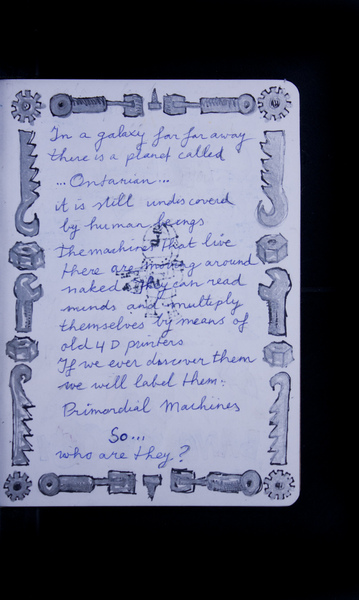 In a galaxy far far away
there is a planet called
... Ontarian ...
it is still undiscoverd
by human beings
The machines that live
there are moving around
naked. They can read
minds and multiply
themselves by means of
old 4D printers
If we ever discover them
we will label them:
Primordial Machines
So...
who are they?